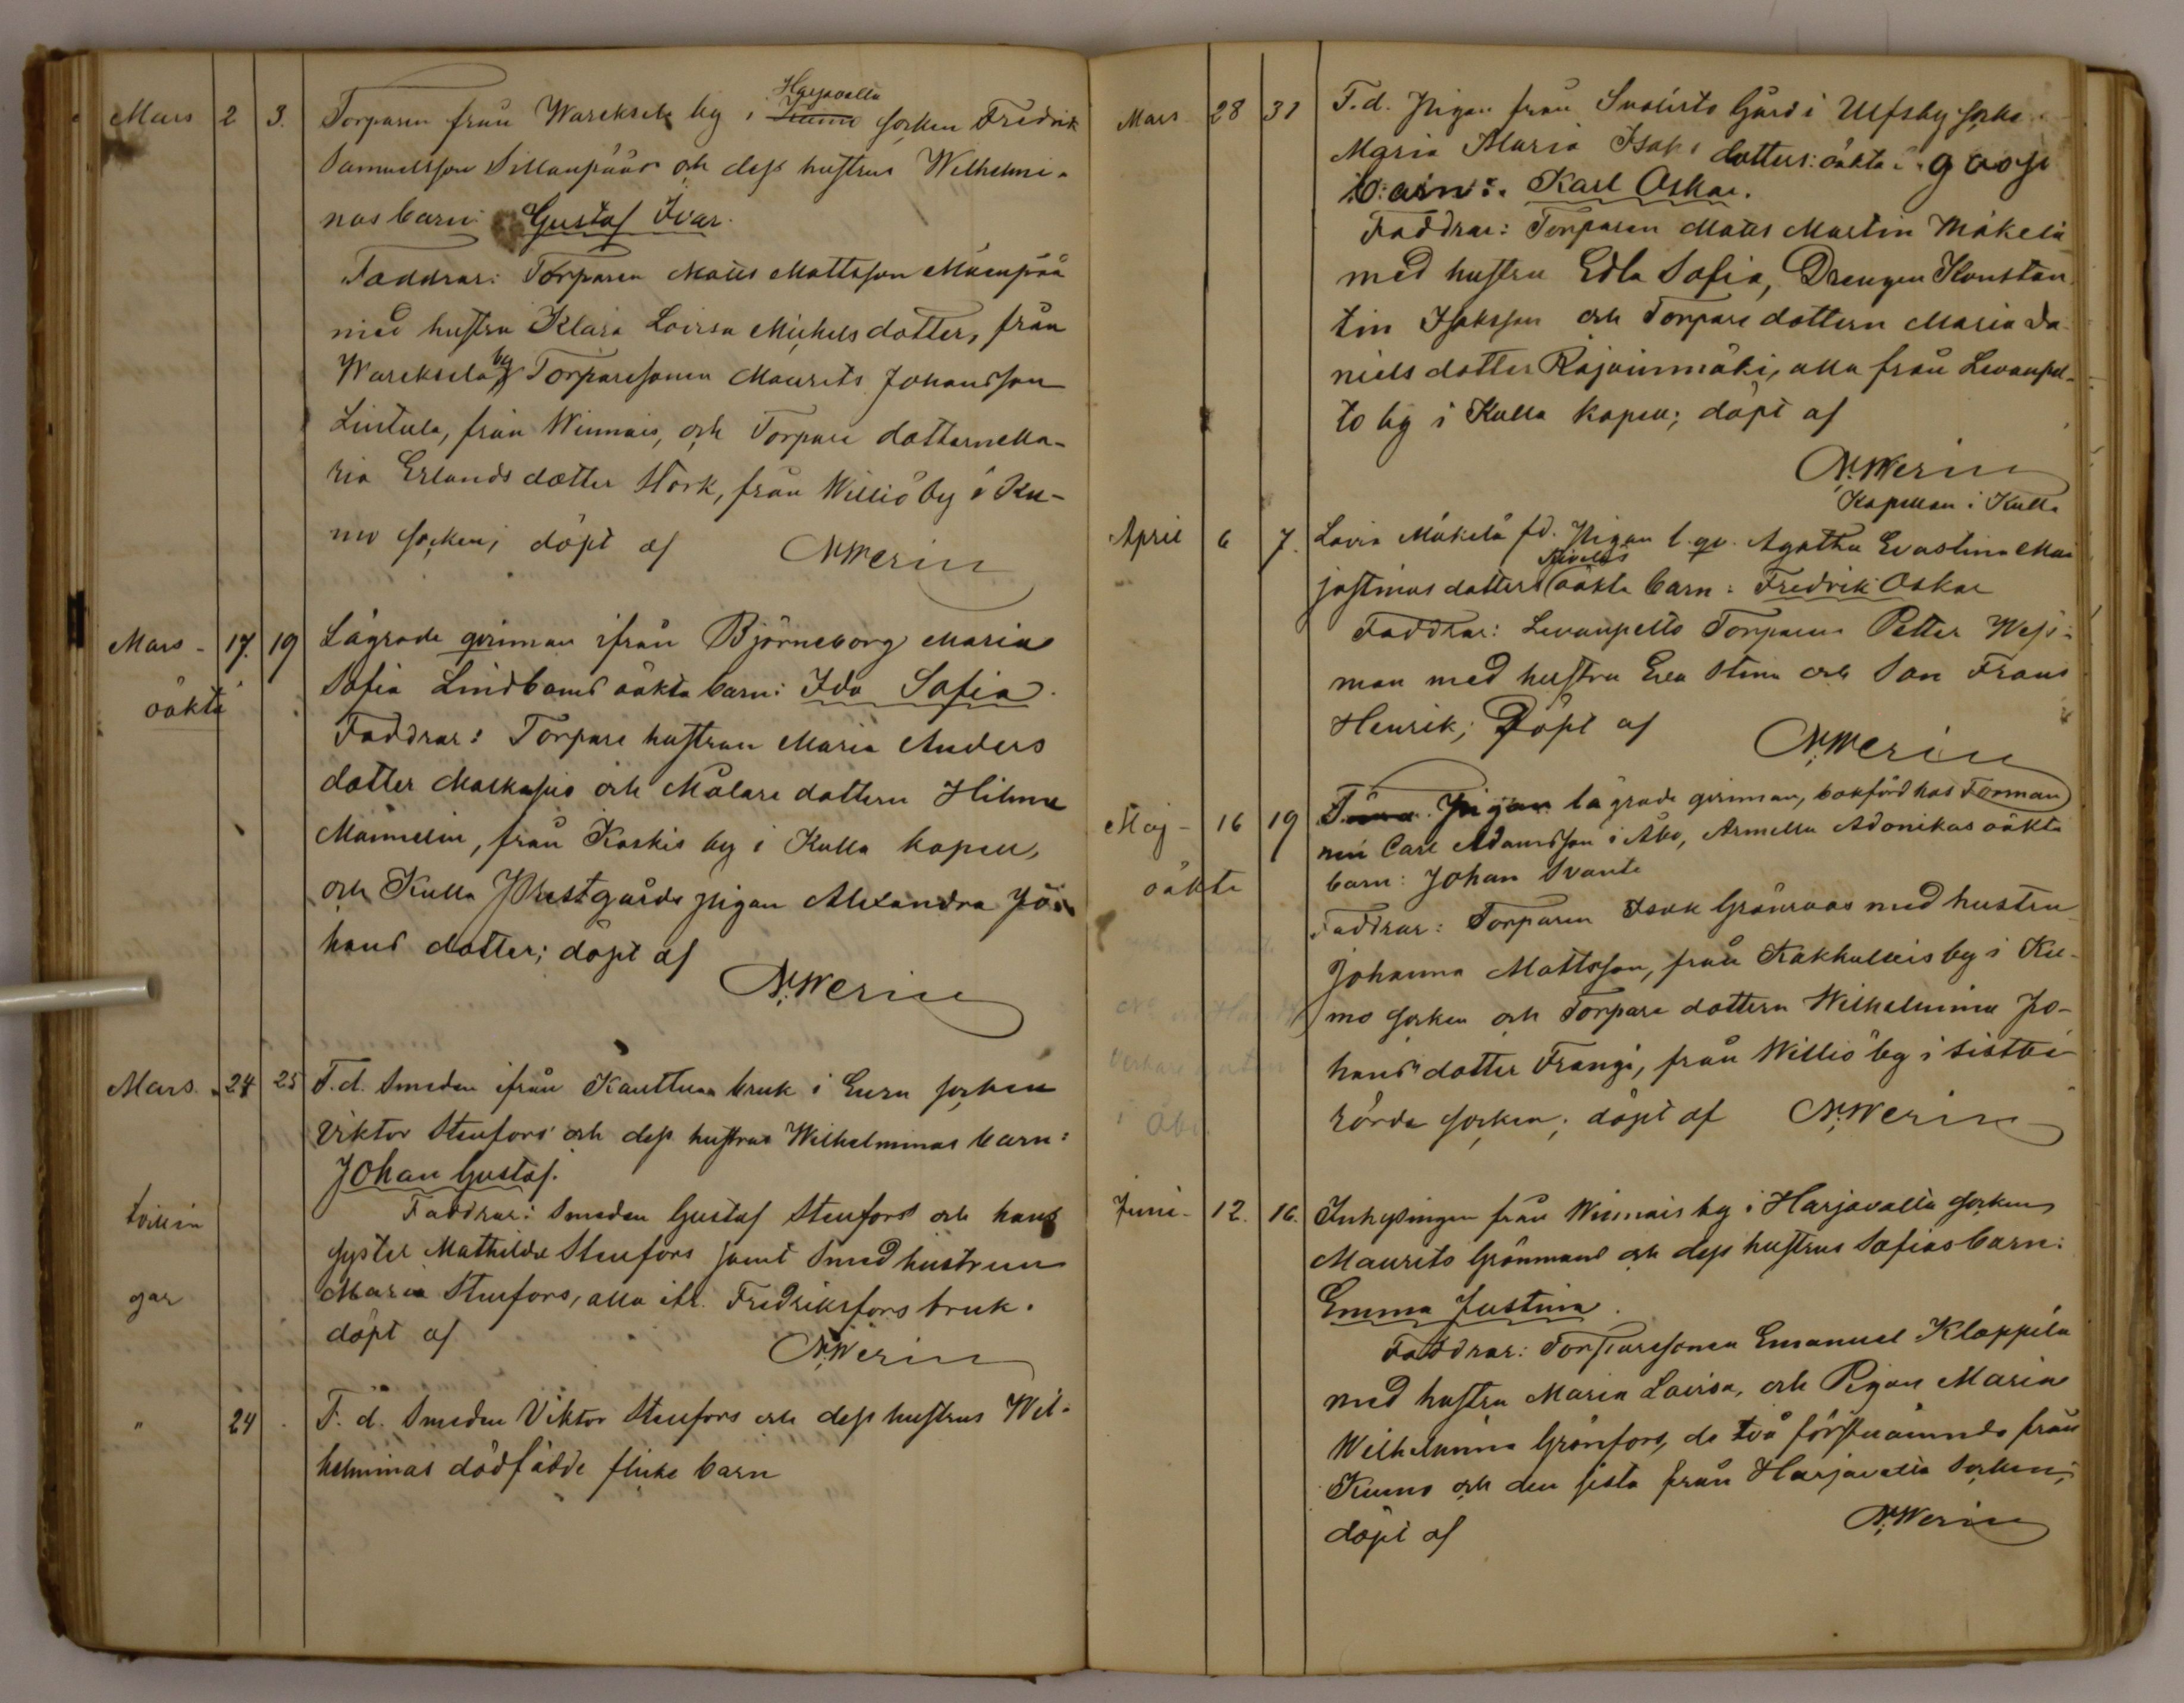 Mars 2 3. Torparen från Wareksela by i Harjavalla socken Fredrik
Samuelsson Sillanpääs och dess hustrus Wilhelmi-
nas barn: Gustaf Ivar.
Faddrar: Torparen Matts Mattsson Mäenpää
med hustru Klara Lovisa Michelsdotter, från
Wareksela by Torparesonen Maurits Johansson
Lintula, från Winnais, och Torpare dottern Ma-
ria Erlands dotter Hörk, från Williö by i Ku-
mo socken; döpt af N. Werin
Mars - 17. 19 Lägrade qvinnan ifrån Björneborg Maria
oäkta Sofia Lindboms oäkta barn: Ida Sofia.
Faddrar: Torpare hustrun Maria Anders
dotter och Målare dottern Hilma
Mannelin, från Koskis by i Kulla kapell,
och Kulla Prestgårds pigan Alexandra Jo-
hans dotter; döpt af
N. Werin
Mars. 24 25 F.d. Smeden ifrån Kauttua bruk i Eura socken
Viktor Stenfors och dess hustrus Wilhelminas barn:
Johan Gustaf.
Tvillin Faddrar: Smeden Gustaf Stenfors och hans
syster Mathilda Stenfors samt Smed hustrun
gar Maria Stenfors, alla ifr. Fredriksfors bruk.
döpt af N. Werin
" 24 F. d. Smeden Viktor Stenfors och dess hustrus Wil-
helminas dödfödde flicke barn
Mars 28 31 F.d. Pigan från Gård i Ulfsby socke
Maria Maria Isaks dotters: oäkta: goss
barn: Karl Oskar.
Faddrar: Torparen Matts Martin Mäkelä
med hustru Edla Sofia, Drengen Konstan
tin Isaksson och Torpare dottern Maria Da
niels dotter Rajainmäki, alla från Levanpel-
to by i Kulla kapell; döpt af
N. Werin
Kapellan i Kulla
April 6 7. Mäkelä fd. Pigan l. qv. Agatha Evastina Mai
jastinas dotters oäkta barn: Fredrik Oskar
Faddrar: Levanpelto Torparen Petter Wess-
man med hustru Eva Stina och Son Frans
Henrik; Döpt af
N. Werin
Maj - 16 19 lägrade qvinnan, bokförd hos Forman
oäkta nen Carl Adamsson i Åbo, Armella Adonikas oäkta
barn: Johan Svante
Faddrar: Torparen Isak Grönroos med hustru
Johanna Mattsson, från Kakkulais by i Ku-
mo socken och Torpare dottern Wilhelmina Jo-
hans dotter Frangi, från Williö by i sistbe-
rörda socken; döpt af N. Werin
i Åbo
Juni - 12. 16. Inhysingen från Winnais by i Harjavalla socken
Maurits Grönmans och dess hustrus Sofias barn:
Emma Justina.
Faddrar: Torparesonen Emanuel Klappila
med hustru Maria Lovisa, och Pigan Maria
Wilhelmina Grönfors, de två förstnämnda från
Kumo och den sista från Harjavalla Socken;
döpt af N. Werin